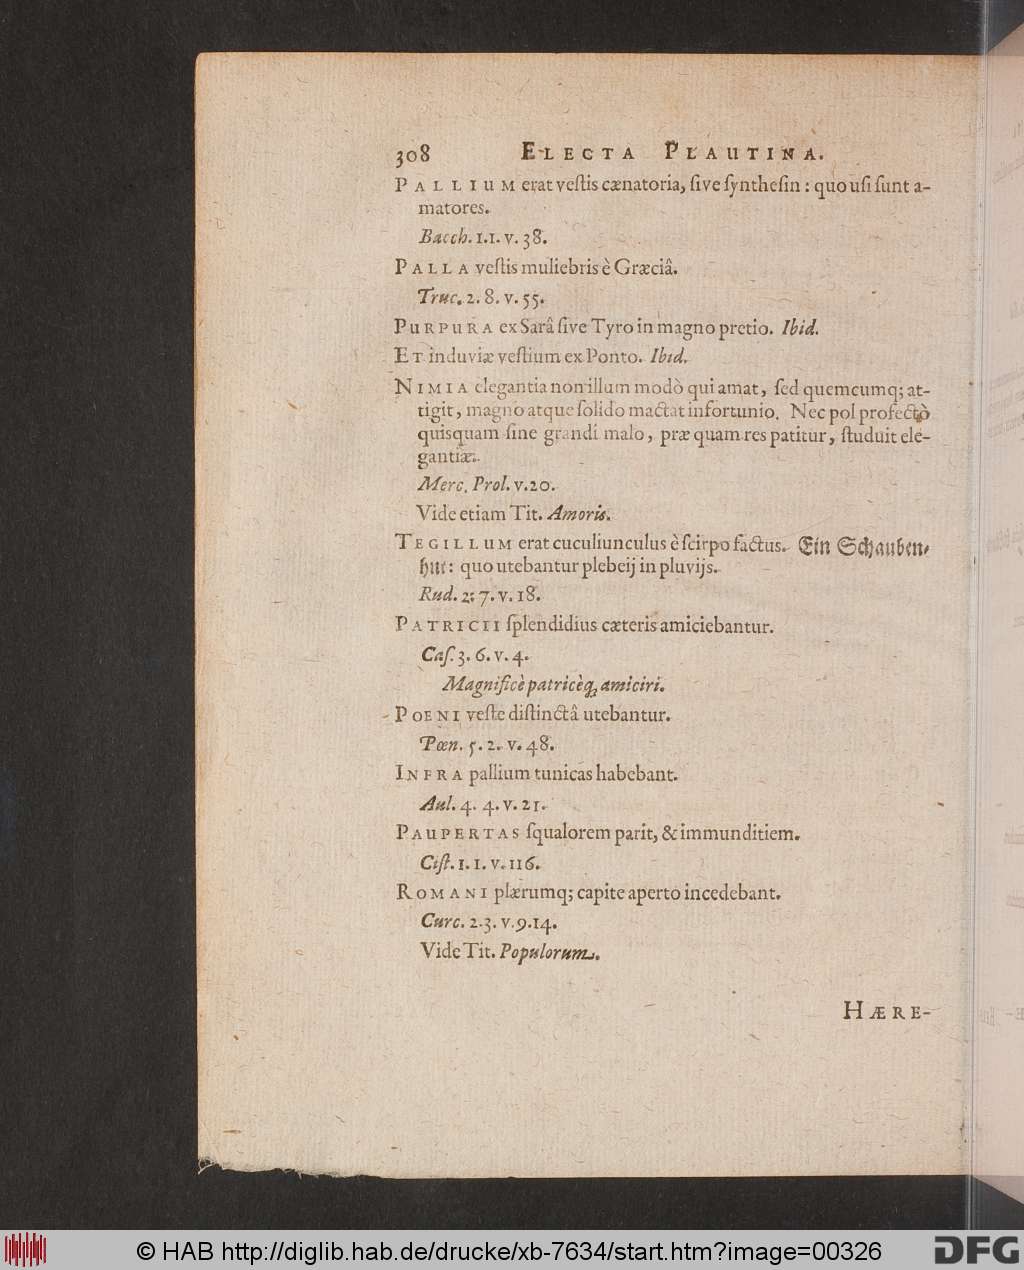 308 ELECTA PLAUTINA.
PALLIUM erat vestis cænatoria, sive synthesin : quo usi sunt a-
matores.
Bacch. 1.1. v. 38.
PALLA vestis muliebris è Græciâ.
Truc. 2. 8. v. 55.
PURPURA ex Sarâ sive Tyro in magno pretio. Ibid.
ET induviæ vestium ex Ponto. Ibid.
NIMIA elegantia non illum modò qui amat, sed quemcumq; at-
tigit, magno atque solido mactat infortunio. Nec pol profectò
quisquam sine grandi malo, præ quam res patitur, studuit ele-
gantiæ.
Merc. Prol. v.20.
Vide etiam Tit. Amoris.
TEGILLUM erat cuculiunculus è scirpo factus. Ein Schauben-
hut: quo utebantur plebeij in pluvijs.
Rud. 2. 7. v. 18.
PATRICII splendidius cæteris amiciebantur.
Cas. 3. 6. v. 4.
Magnificè patricèq; amiciri.
POENI veste distinctâ utebantur.
Pœn. 5. 2. v. 48.
INFRA pallium tunicas habebant.
Aul. 4. 4. v. 21.
PAUPERTAS squalorem parit, & immunditiem.
Cist. 1. 1. v. 116.
ROMANI plærumq; capite aperto incedebant.
Curc. 2.3. v.9.14.
Vide Tit. Populorum.
HÆRE-
© HAB http://diglib.hab.de/drucke/xb-7634/start.htm?image=00326
DFG